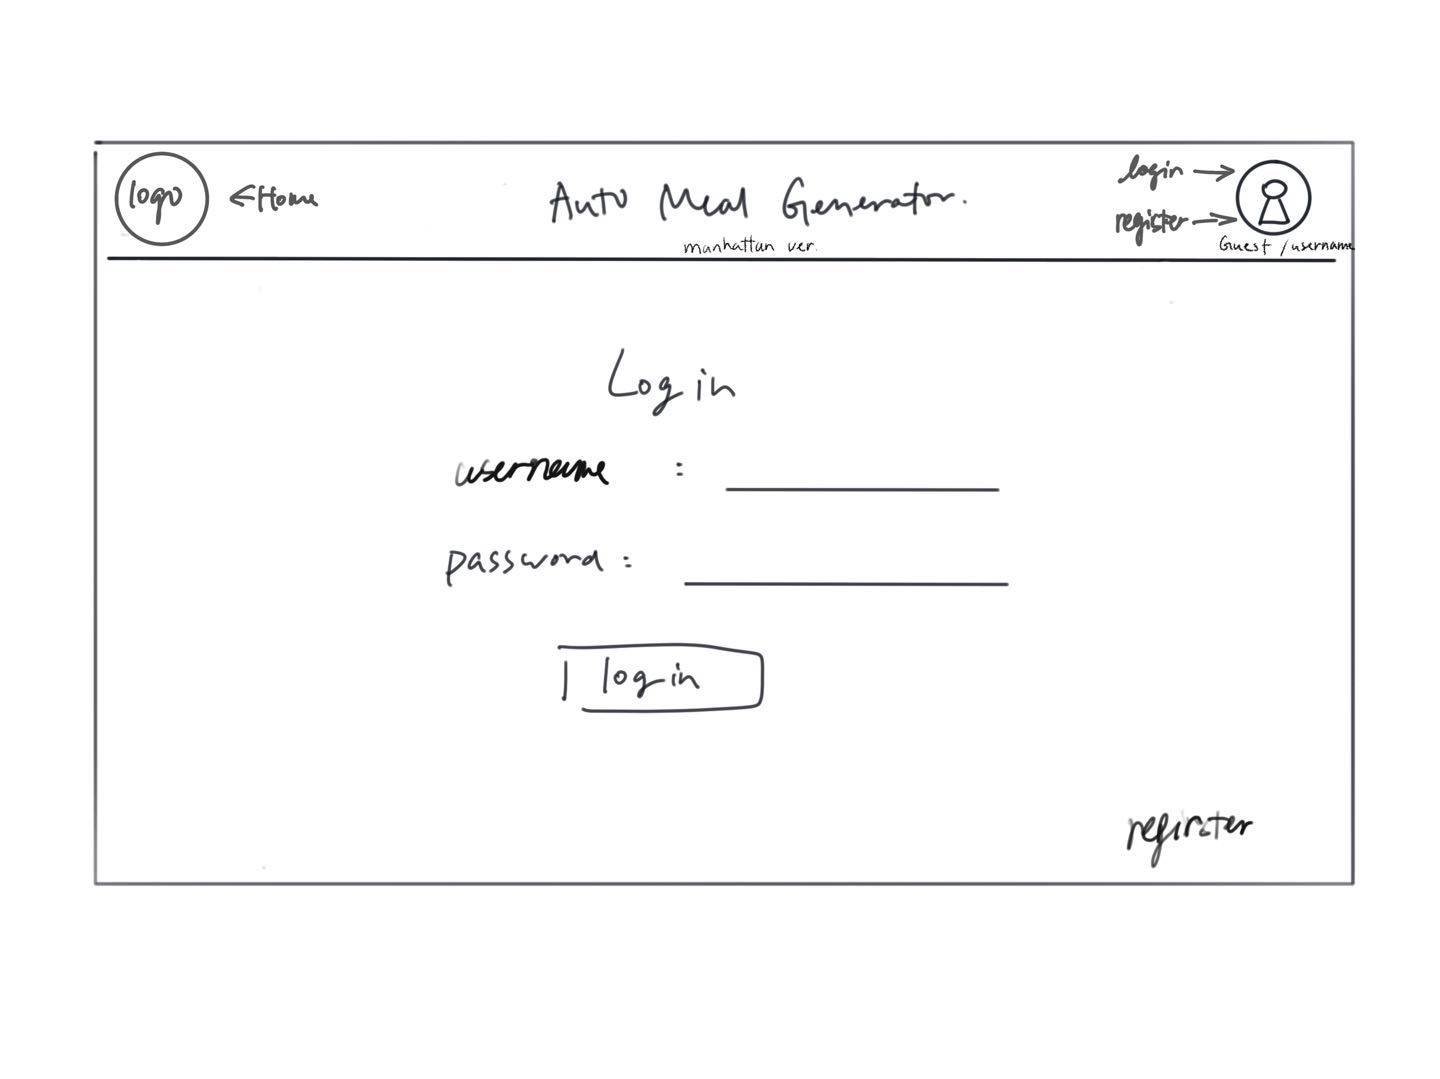 logo ← Home
Auto Meal Generator.
manhattan ver.
login →
register →
Guest / username
Login
username :
password :
login
register